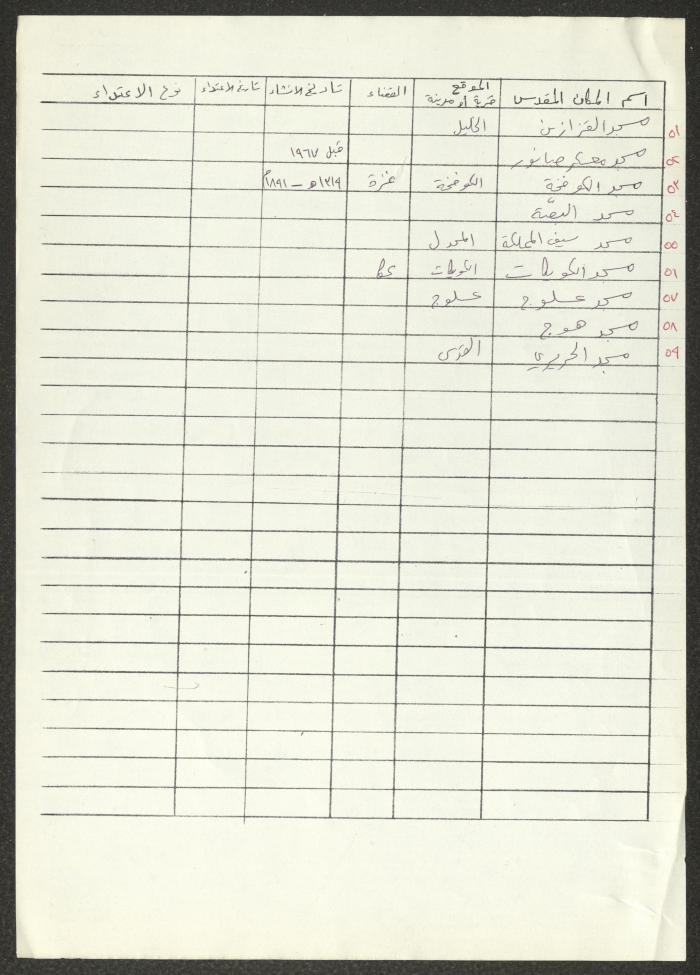 اسم المكان المقدس الموقع قرية أو مدينة القضاء تاريخ الانشاء تاريخ الاعتداء نوع الاعتداء
٥١ مسجد القزازين الخليل
٥٢ مسجد معسكر صانور قبل ١٩٦٧
٥٣ مسجد الكوفخة الكوفخة غزة ١٣١٩هـ - ١٨٩١م
٥٤ مسجد البصّة
٥٥ مسجد سيف المملكة المجدل
٥٦ مسجد الكويكات الكويكات عكا
٥٧ مسجد عسلوج عسلوج
٥٨ مسجد هوج
٥٩ مسجد الحريري القدس